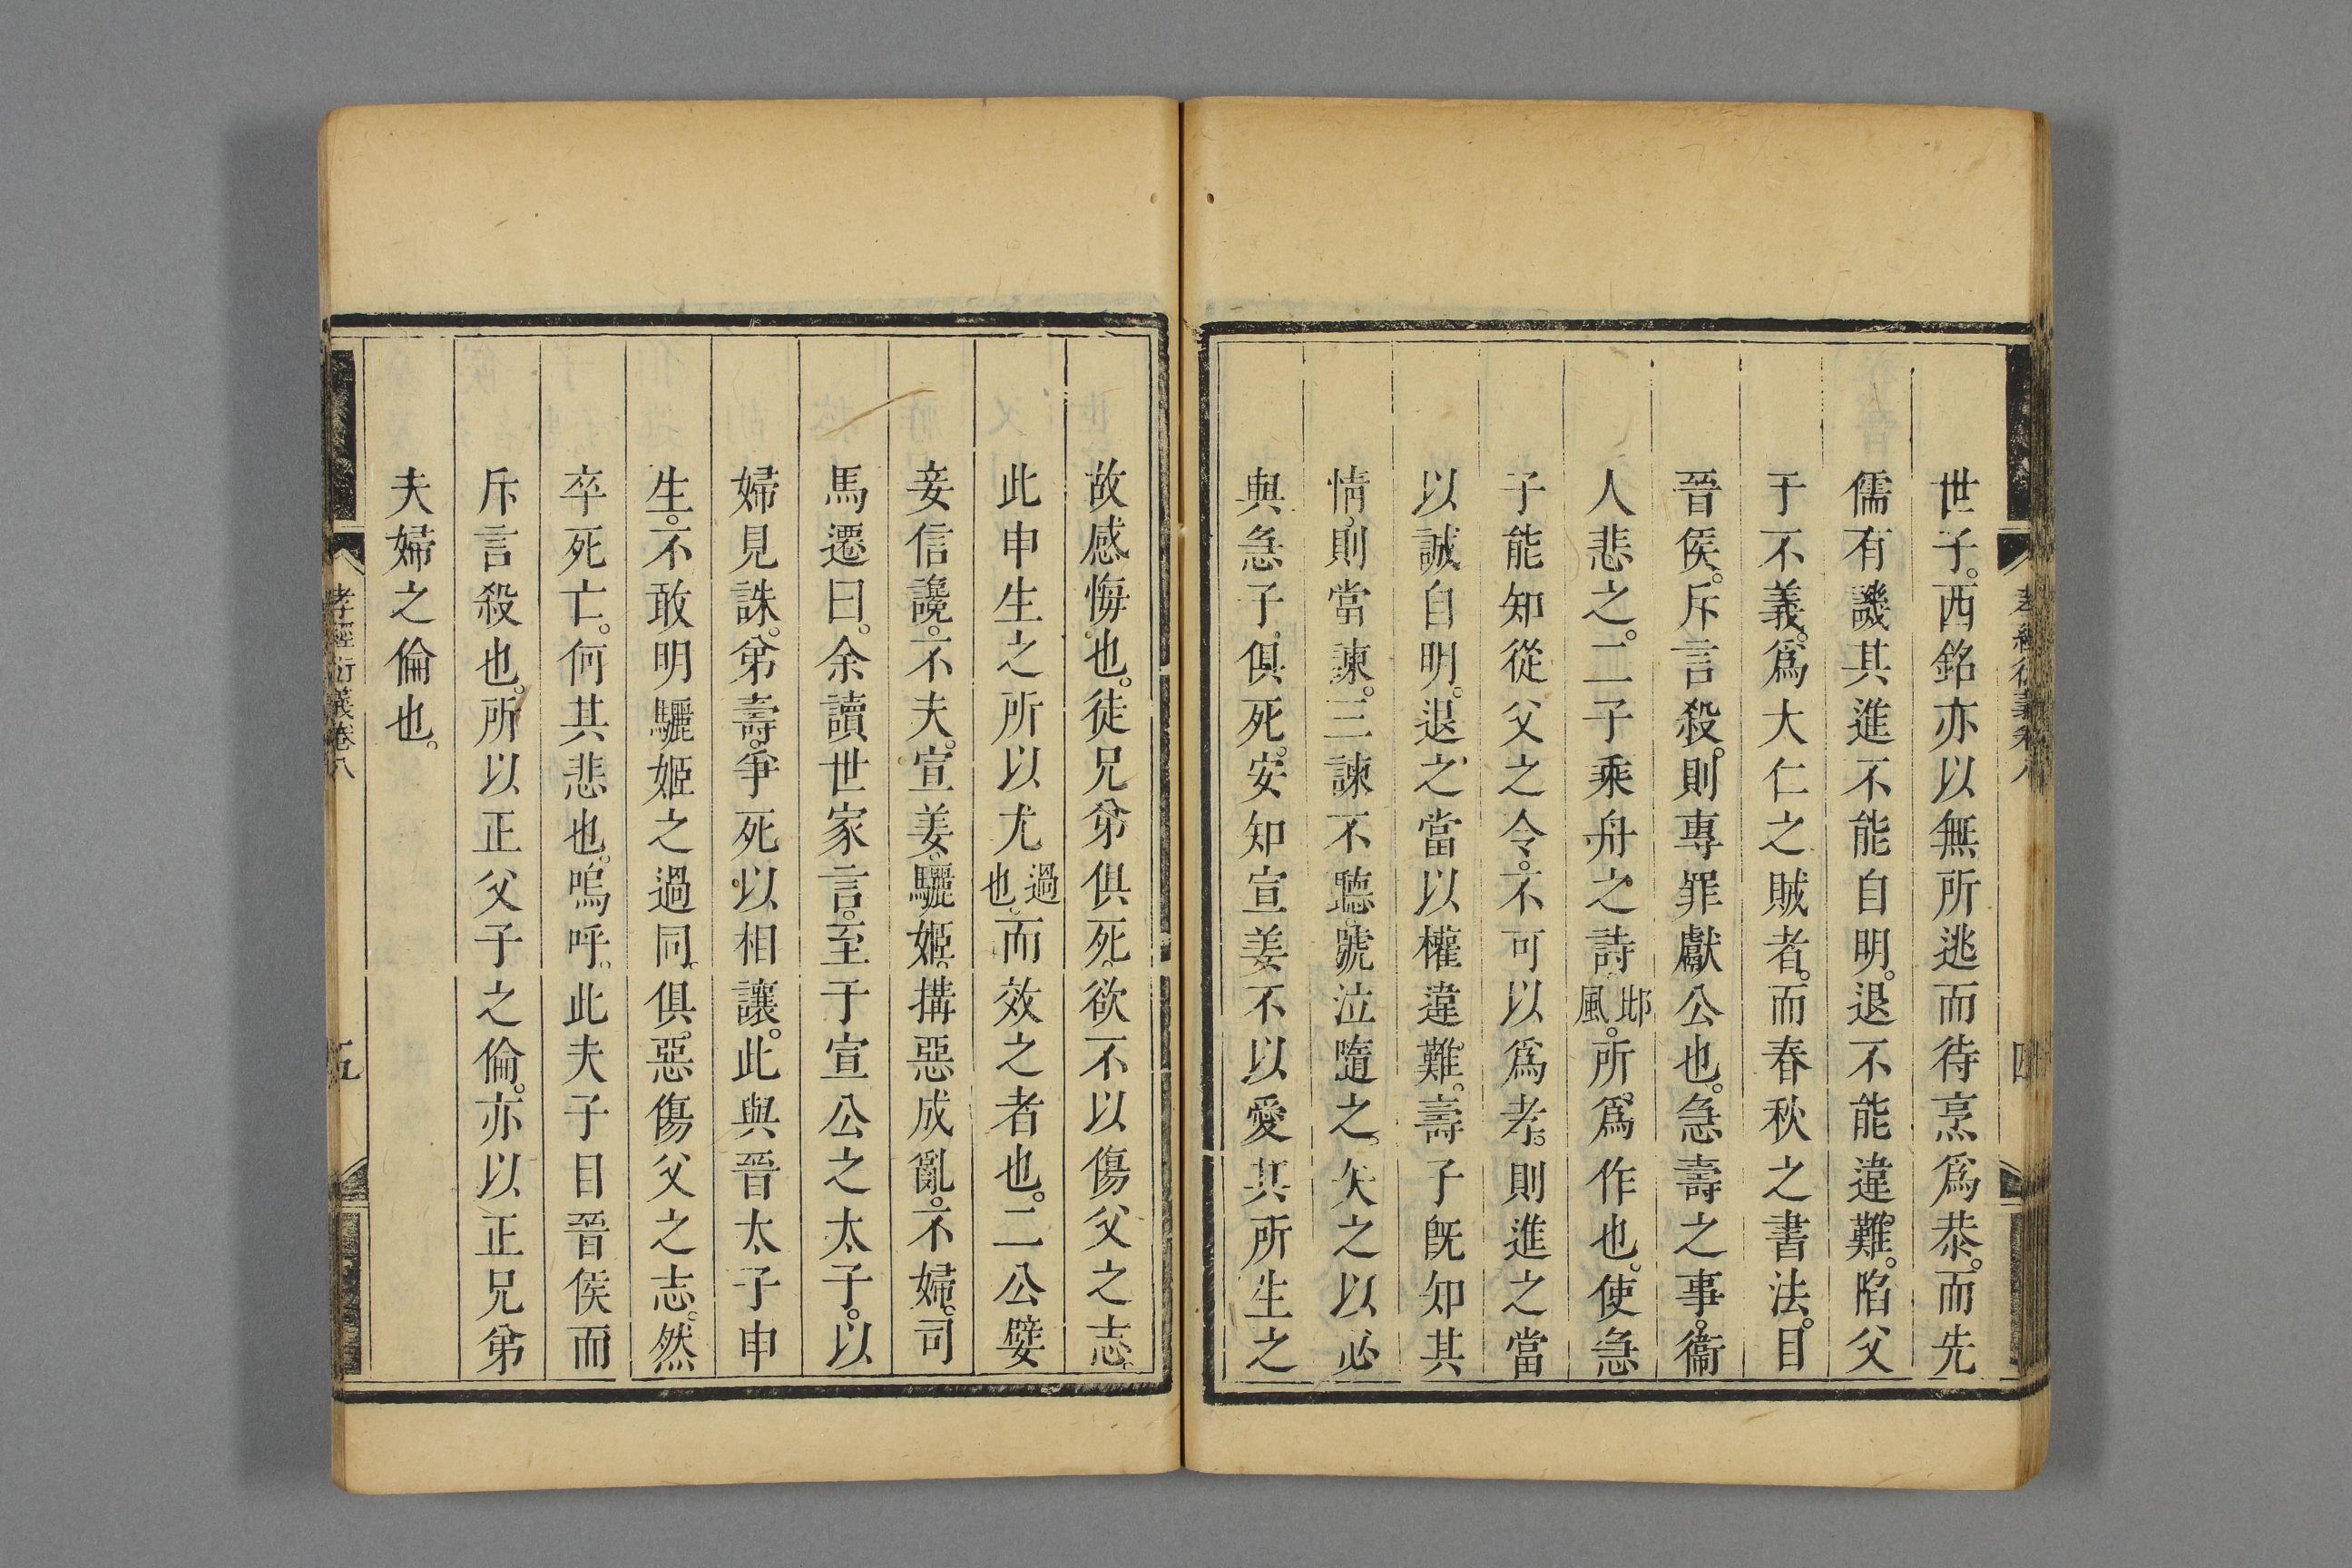 世子。西銘亦以無所逃而待烹爲恭。而先
儒有譏其進不能自明。退不能違難。陷父
于不義。爲大仁之賊者。而春秋之書法。目
晉侯。斥言殺。則專罪獻公也。急壽之事。衞
人悲之。二子乘舟之詩邶風。所爲作也。使急
子能知從父之令。不可以爲孝。則進之當
以誠自明。退之當以權違難。壽子旣知其
情。則當諫。三諫不聽。號泣隨之。矢之以必
與急子。俱死。安知宣姜不以愛其所生之
孝經衍義卷八
四
故感悔也。徒兄弟俱死。欲不以傷父之志。
此申生之所以尤過也。而效之者也。二公嬖
妾信讒。不夫。宣姜。驪姬。搆惡成亂。不婦。司
馬遷曰。余讀世家言。至于宣公之太子。以
婦見誅。弟壽。爭死以相讓。此與晉太子申
生。不敢明驪姬之過同。俱惡傷父之志。然
卒死亡。何其悲也。嗚呼。此夫子目晉侯而
斥言殺也。所以正父子之倫。亦以正兄弟
夫婦之倫也。
孝經衍義卷八
五